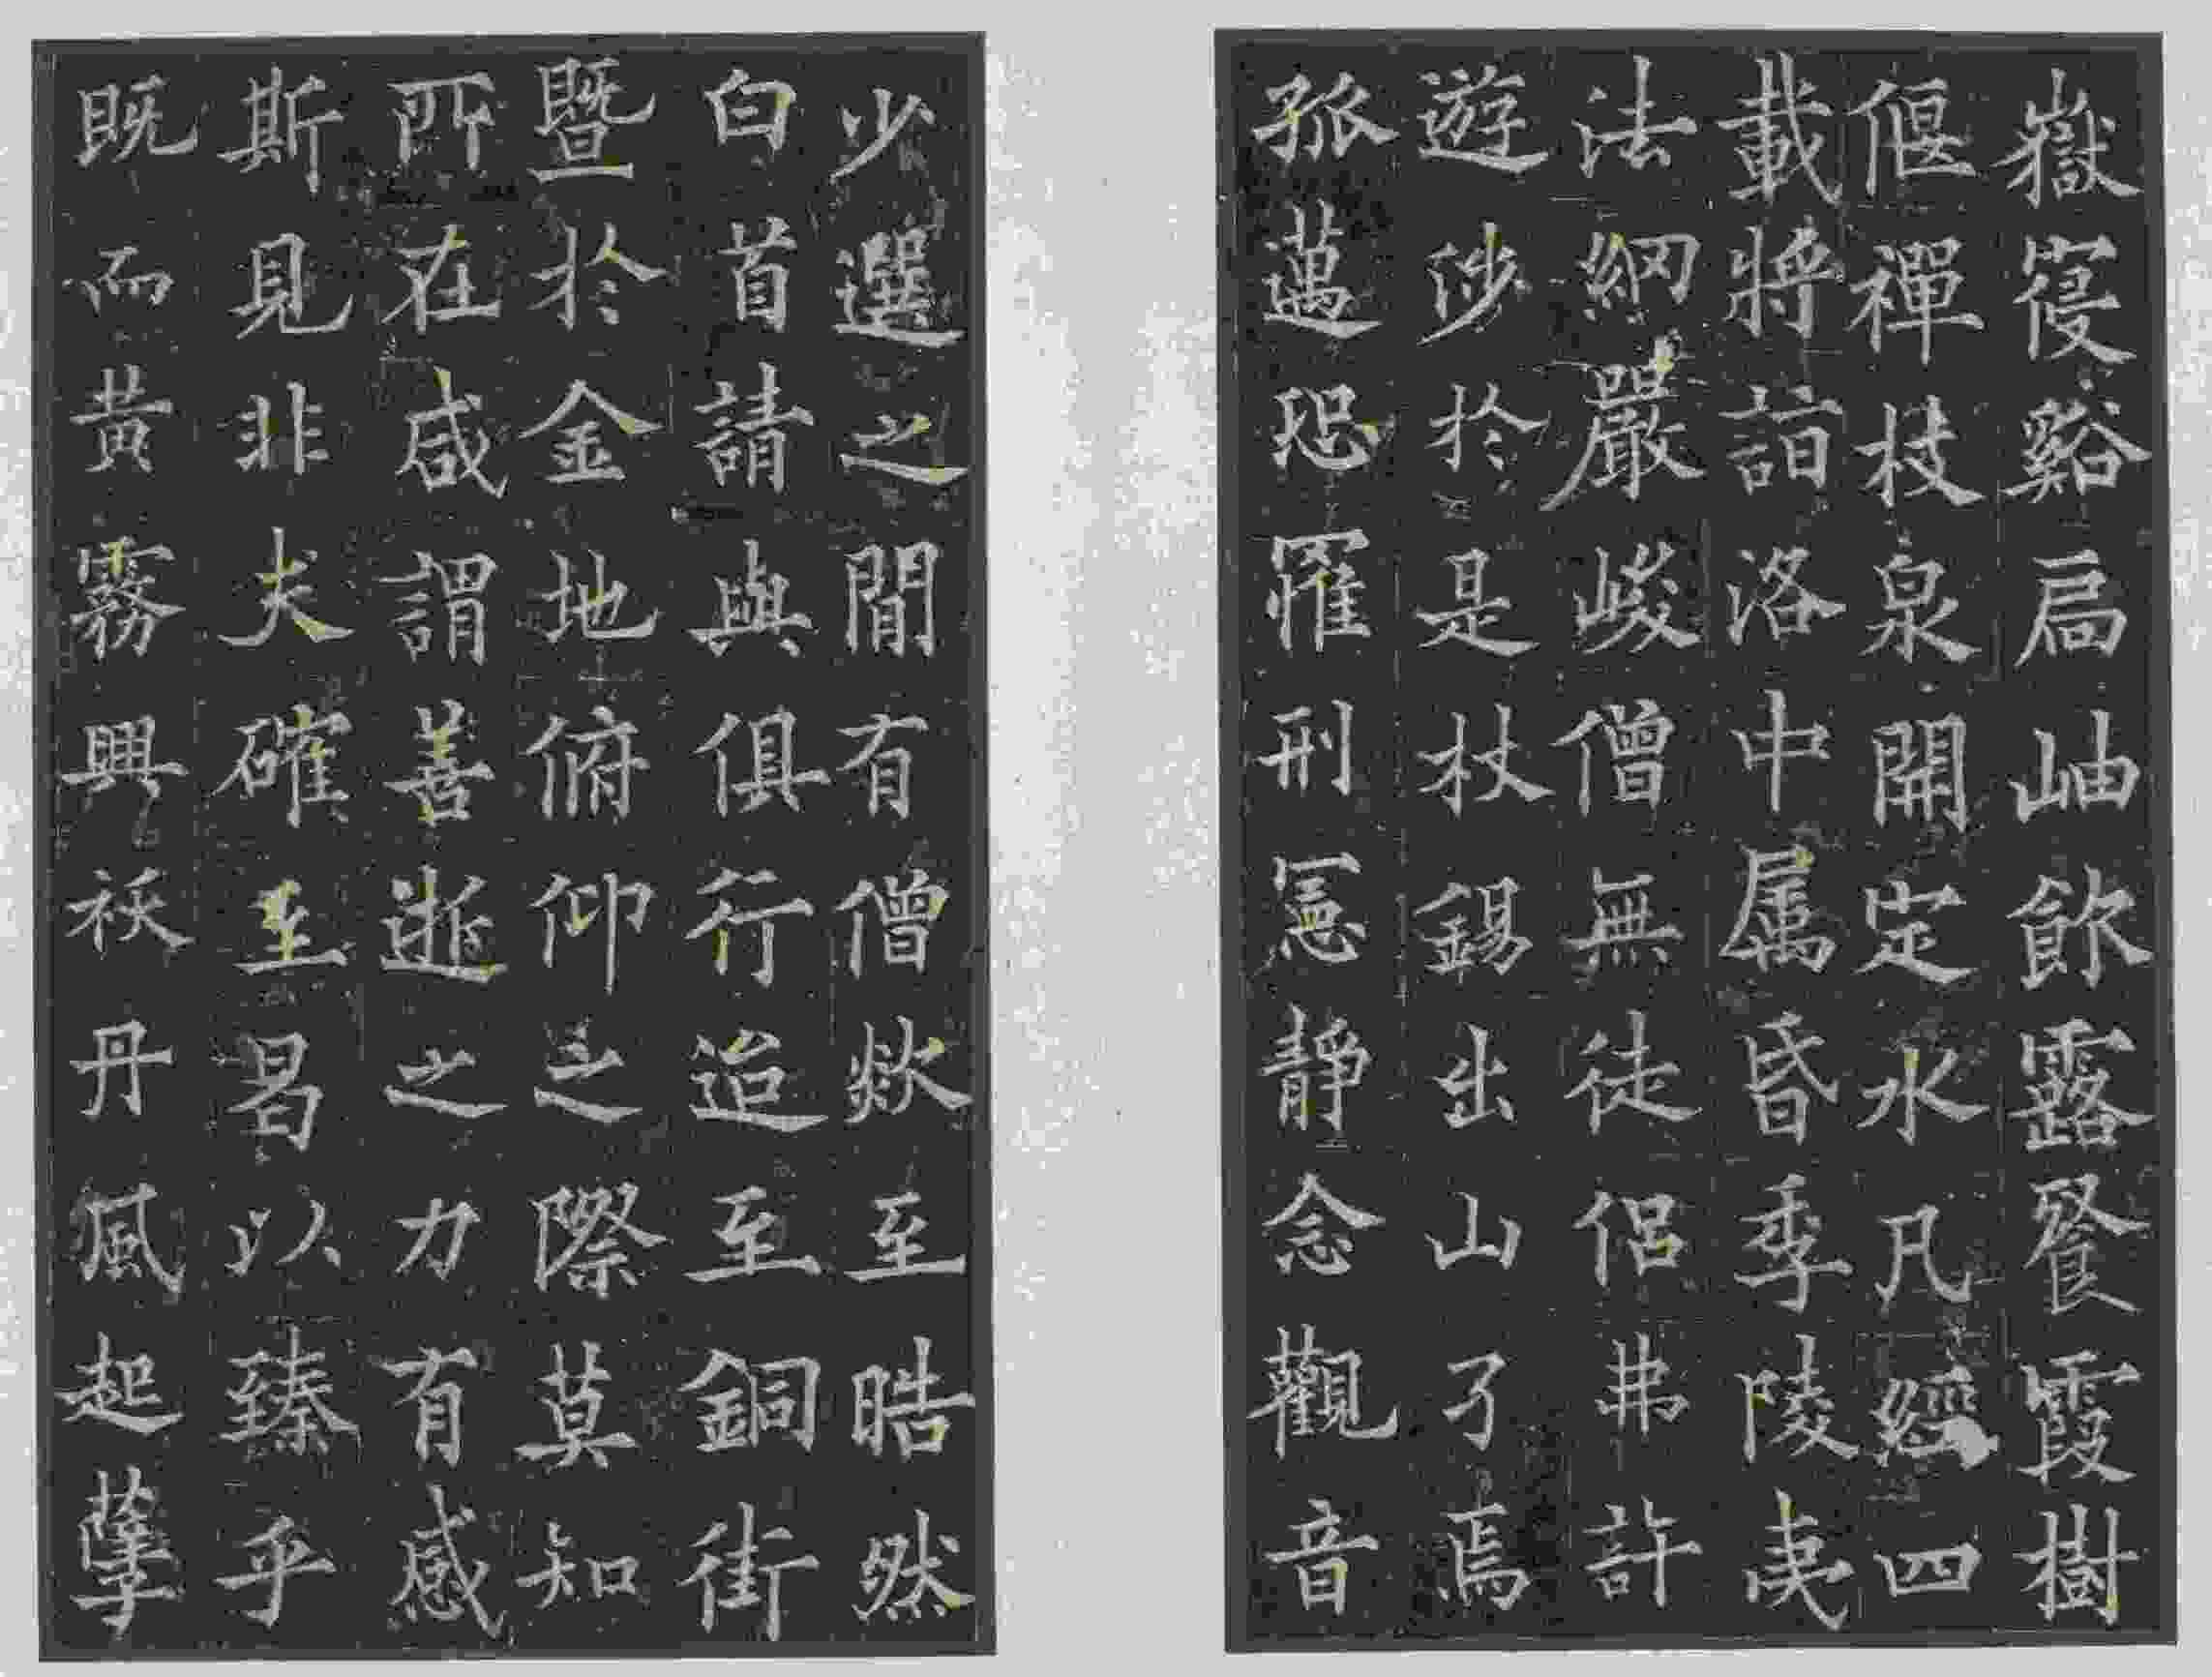 嶽寑谿扃岫飲露餐霞樹
偃禪枝泉開定水凡經四
載將詣洛中属昏季陵夷
法網嚴峻僧無徒侶弗許
遊涉於是杖錫出山了焉
孤邁恐罹刑憲靜念觀音
少選之間有僧欻至皓然
白首請與俱行迨至銅街
暨於金地俯仰之際莫知
所在咸謂善逝之力有感
斯見非夫確至曷以臻乎
既而黃霧興祅丹風起孽